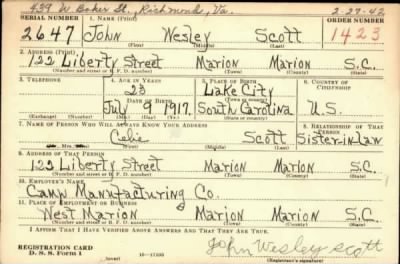 439 W. Baker St., Richmond, Va. 2-27-42
SERIAL NUMBER 1. NAME (Print) ORDER NUMBER
2647 John Wesley Scott 1423
(First) (Middle) (Last)
2. ADDRESS (Print)
122 Liberty Street Marion Marion S.C.
(Number and street or R. F. D. number) (Town) (County) (State)
3. TELEPHONE 4. AGE IN YEARS 5. PLACE OF BIRTH 6. COUNTRY OF CITIZENSHIP
23 Lake City
DATE OF BIRTH (Town or county)
July 9 1917. South Carolina U.S.
(Exchange) (Number) (Mo.) (Day) (Yr.) (State or country)
7. NAME OF PERSON WHO WILL ALWAYS KNOW YOUR ADDRESS 8. RELATIONSHIP OF THAT PERSON
Scott Sister-in-law
(Mr., Mrs., Miss) (First) (Middle) (Last)
9. ADDRESS OF THAT PERSON
122 Liberty Street Marion Marion S.C.
(Number and street or R. F. D. number) (Town) (County) (State)
10. EMPLOYER'S NAME
Camp Manufacturing Co.
11. PLACE OF EMPLOYMENT OR BUSINESS
West Marion Marion Marion S.C.
(Number and street or R. F. D. number) (Town) (County) (State)
I AFFIRM THAT I HAVE VERIFIED ABOVE ANSWERS AND THAT THEY ARE TRUE.
REGISTRATION CARD
D. S. S. Form 1 (over) 16-17105 John Wesley Scott
(Registrant's signature)